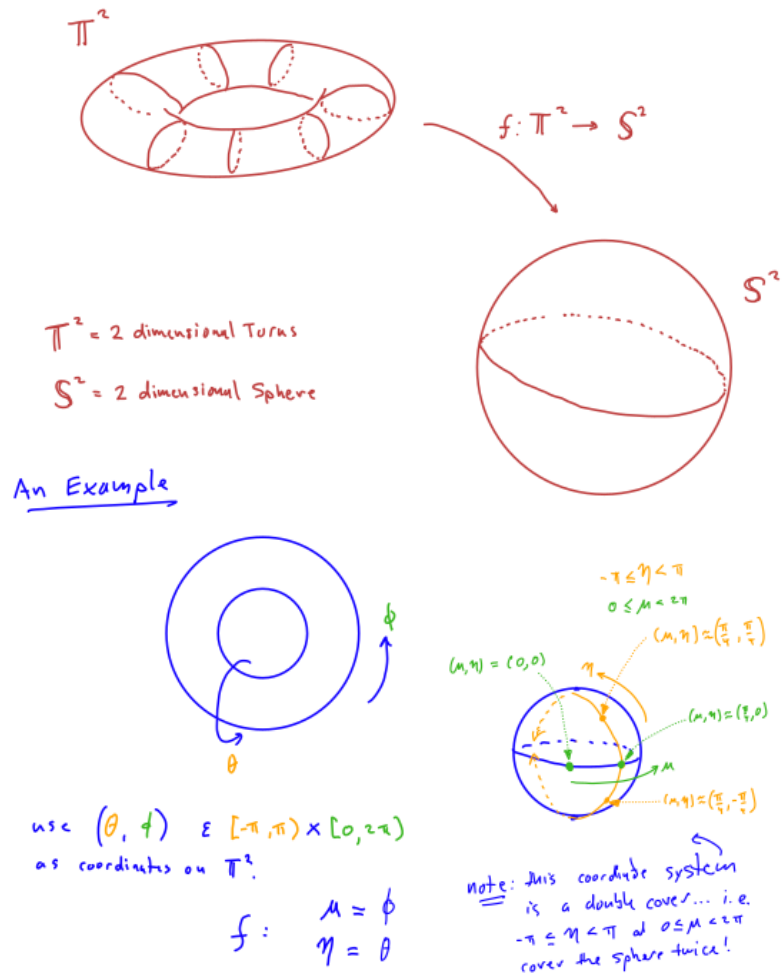 𝕋²
f: 𝕋² → 𝕊²
𝕊²
𝕋² = 2 dimensional Turus
𝕊² = 2 dimensional Sphere
An Example
ϕ
θ
-π ≤ η < π
0 ≤ μ < 2π
(μ,η) ≃ (π/4, π/4)
(μ,η) = (0,0)
η
(μ,η) ≃ (π/4, 0)
μ
(μ,η) ≃ (π/4, -π/4)
use (θ, ϕ) ε [-π,π) × [0,2π)
as coordinates on 𝕋².
f: μ = ϕ
η = θ
note: this coordinate system
is a double cover... i.e.
-π ≤ η < π and 0 ≤ μ < 2π
cover the sphere twice!